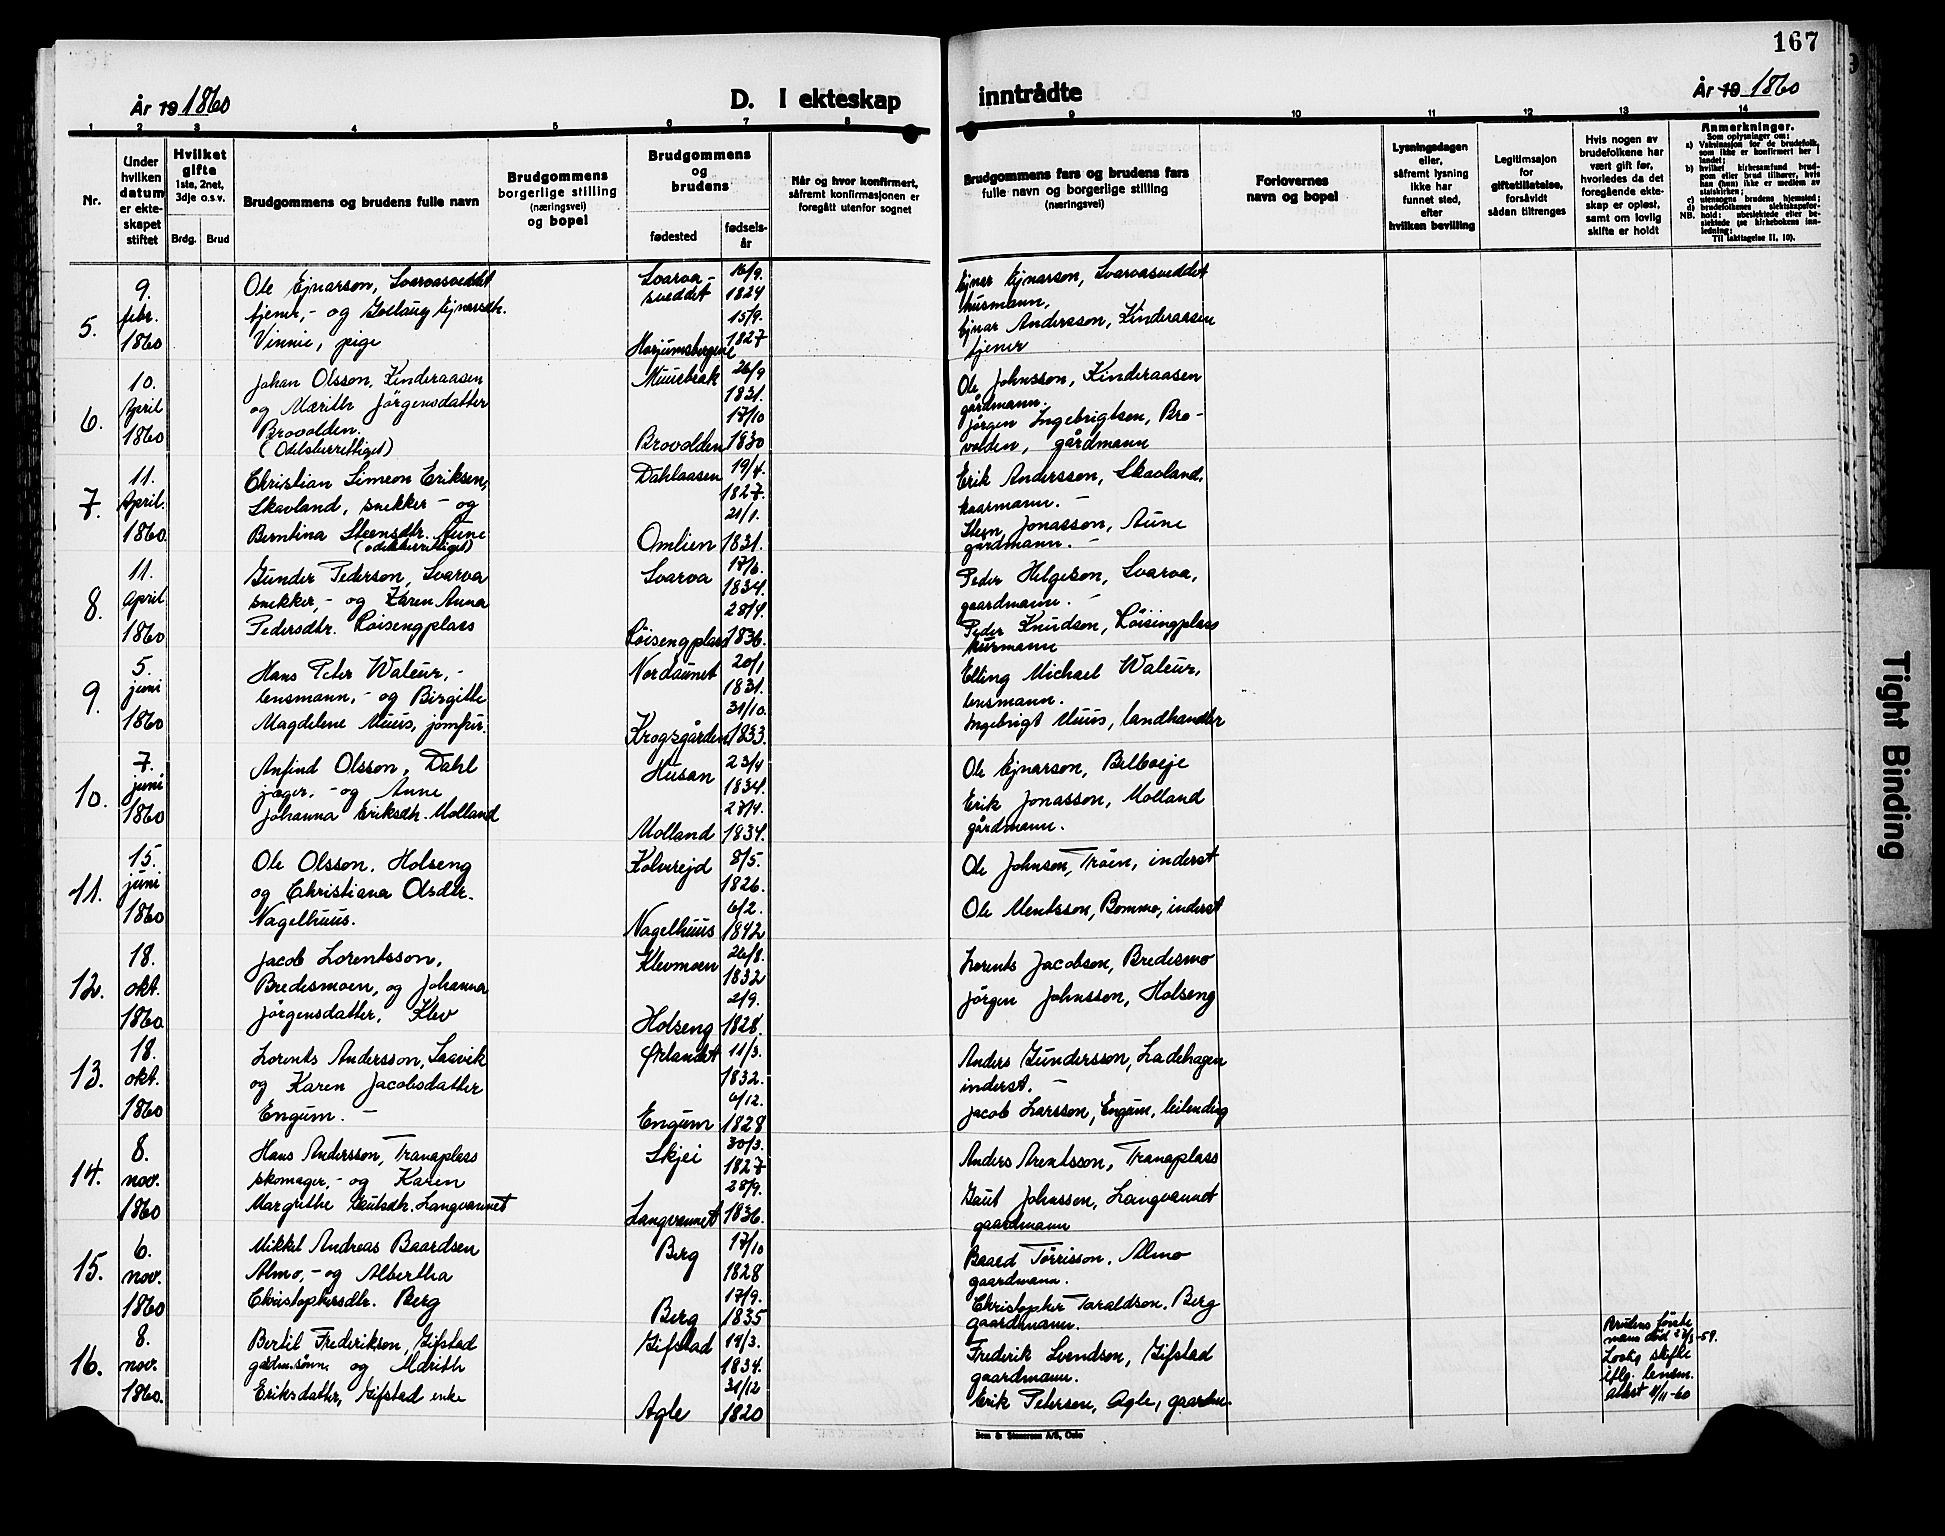 167
År 19 1860
D. I ekteskap
inntrådte
År 19 1860
1 2 3 4 5 6 7 8 9 10 11 12 13 14
Nr.
Under hvilken datum er ekteskapet stiftet
Hvilket gifte
1ste, 2net, 3dje o.s.v.
Brdg. Brud
Brudgommens og brudens fulle navn
Brudgommens borgerlige stilling (næringsvei) og bopel
Brudgommens og brudens
fødested
fødselsår
Når og hvor konfirmert, såfremt konfirmasjonen er foregått utenfor sognet
Brudgommens fars og brudens fars fulle navn og borgerlige stilling (næringsvei)
Forlovernes navn og bopel
Lysningsdagen eller, såfremt lysning ikke har funnet sted, efter hvilken bevilling
Legitimasjon for giftetillatelse, forsåvidt sådan tiltrenges
Hvis nogen av brudefolkene har vært gift før, hvorledes da det foregående ekteskap er opløst, samt om lovlig skifte er holdt
Anmerkninger.
Som oplysninger om:
a) Vaksinasjon for de brudefolk, som ikke er konfirmert her i landet;
b) hvilket kirkesamfund brudgom eller brud tilhører, hvis han (hun) ikke er medlem av statskirken;
c) utensogns brudens hjemsted;
d) brudefolkenes slektskapsforhold: ubeslektede eller beslektede (se kirkebokens innledning;
NB.
Til iakttagelse II, 10).
5.
9. febr. 1860
Ole Ejnarson, Svarvasveddet
tjener, - og Gollaug Ejnarsdtr.
Vinnie, pige
Svarva-
sveddet
16/9. 1824
Harjumsbergene
15/9. 1827
Ejner Ejnarson, Svarvasveddet
husmann,
Ejnar Andersson, Kinderaasen
tjener
6.
10. April 1860
Johan Olsson, Kinderaasen
og Marith Jörgensdatter
Brovolden.
(Odelsberettiget)
Muusbrak
26/9 1831.
Brovolden
17/10 1830
Ole Johnsson, Kinderaasen
gårdmann.
Jörgen Ingebrigtsen, Bro-
volden, gårdmann
7.
11. April. 1860
Christian Simeon Eriksen,
Skavland, snekker - og
Berntina Steensdtr. Aune
(odelsberettiget)
Dahlaasen
19/4. 1827.
Omlien
21/1. 1831.
Erik Andersson, Skavland,
kaarmann. -
Steen Jonasson, Aune
gårdmann. -
8.
11. April 1860
Gunder Pederson, Svarva
snekker, - og Karen Anna
Pedersdtr. Löisengplass
Svarva
17/6. 1834.
Löisengplass
28/4. 1836.
Peder Helgeson, Svarva,
gaardmann. -
Peder Knudson, Löisingplass
husmann
9.
5. juni 1860
Hans Peter Waleur, -
lensmann, - og Birgitte
Magdelene Muus, jomfru.
Nordaunet
20/1 1831.
Krogsgården
31/10. 1833.
Elling Michael Waleur,
lensmann.
Ingebrigt Muus, landhandler
10.
7. juni 1860
Anfind Olsson, Dahl
jæger, - og Anne
Johanna Eriksdtr. Molland
Husan
23/4 1834.
Molland
27/4. 1834.
Ole Ejnarson, Belboeje
Erik Jonasson, Molland
gårdmann.
11.
15. juni 1860
Ole Olsson, Holseng
og Christiana Olsdtr.
Nagelhuus.
Kolverejd
8/5. 1826.
Nagelhuus
6/2. 1842
Ole Johnson, Tröen, inderst
Ole Mentsson, Bommo, inderst
12.
18. okt. 1860
Jacob Lorentsson,
Bredesmoen, og Johanna
Jörgensdatter, Klev
Klevmoen
26/8. 1832
Holseng
2/9. 1828.
Lorents Jacobson, Bredesmo
Jörgen Johnsson, Holseng
13.
18. okt. 1860
Lorents Andersson, Saavik
og Karen Jacobsdatter
Engum. -
Ørlandet
11/3. 1832.
Engum
6/12. 1828
Anders Gundersson, Ladehagen
inderst. -
Jacob Larsson, Engum, leilending
14.
8. nov. 1860
Hans Andersson, Tranaplass
skomager, - og Karen
Margrithe Gautsdtr. Langvannet
Skjei
30/3. 1827
Langvannet
28/9. 1836.
Anders Arentsson, Tranaplass
Gaut Johnsson, Langvannet
gaardmann
15.
6. nov. 1860
Mikkel Andreas Baardsen
Almo, - og Albertha
Christophersdtr. Berg
Berg
17/10 1828
Berg
17/9. 1835
Baard Torrisson, Almo
gaardmann.
Christopher Taraldson, Berg
gaardmann.
16.
8. nov. 1860.
Bertil Frederikson, Gifstad
gaardm.sönn, og Marith
Eriksdatter, Gifstad enke
Gifstad
14/3. 1834.
Agle
31/12 1820
Frederik Svendson, Gifstad
gaardmann.
Erik Petersen, Agle, gaardm.
Brudens förste
mann död 27/3-59.
Lovlig skifte
iflg. lensm.
attest 8/11-60
Sem & Stenersen A/S, Oslo
Tight Binding